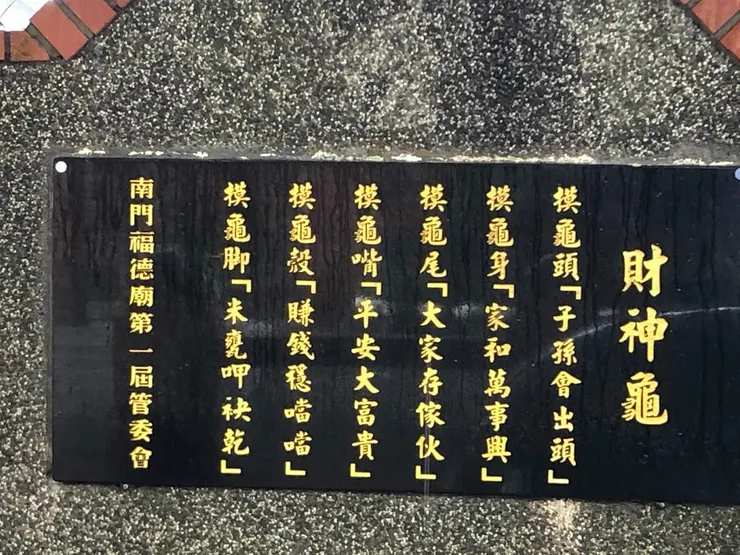 財神龜
模龜頭「子孫會出頭」
模龜身「家和萬事興」
模龜尾「大家存傢伙」
模龜嘴「平安大富貴」
模龜殼「賺錢穩噹噹」
模龜脚「米甕呷袂乾」
南門福德廟第一屆管委會